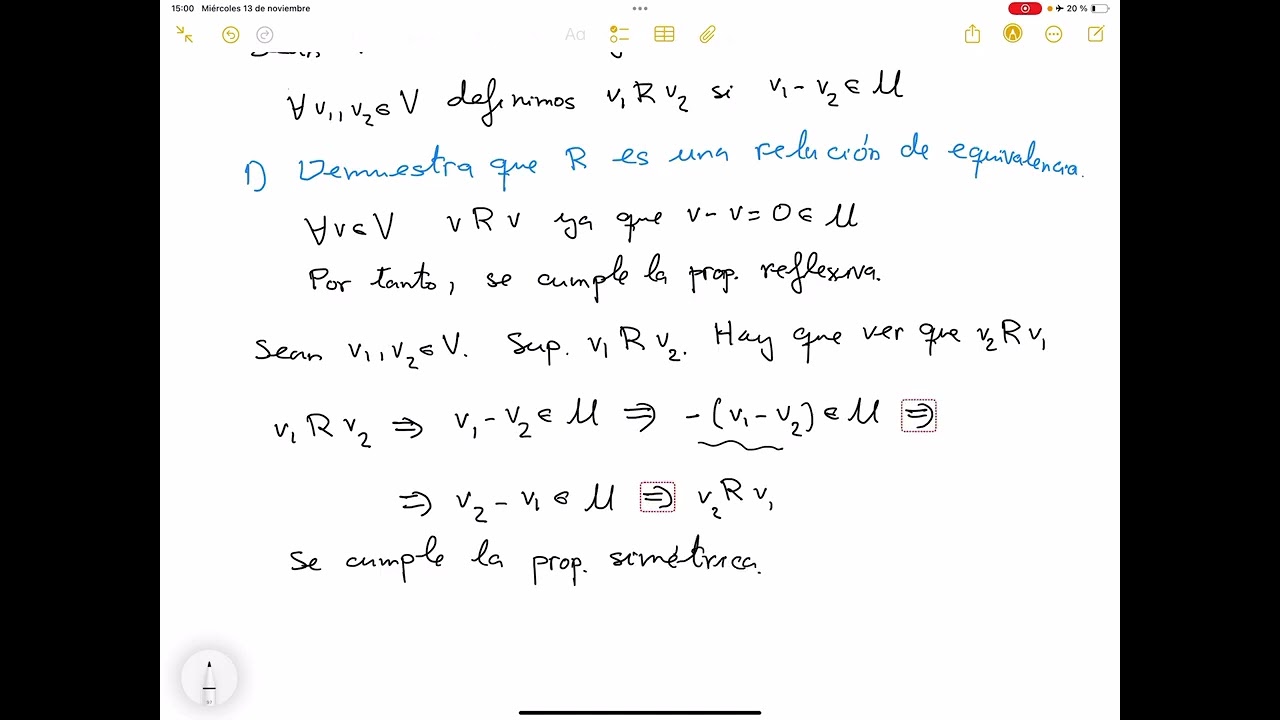 15:00 Miércoles 13 de noviembre
20 %
Aa
∀ v₁, v₂ ∈ V definimos v₁ R v₂ si v₁ - v₂ ∈ U
1) Demuestra que R es una relación de equivalencia.
∀ v ∈ V v R v ya que v - v = 0 ∈ U
Por tanto, se cumple la prop. reflexiva.
Sean v₁, v₂ ∈ V. Sup. v₁ R v₂. Hay que ver que v₂ R v₁
v₁ R v₂ ⇒ v₁ - v₂ ∈ U ⇒ - (v₁ - v₂) ∈ U ⇒
⇒ v₂ - v₁ ∈ U ⇒ v₂ R v₁
Se cumple la prop. simétrica.
97